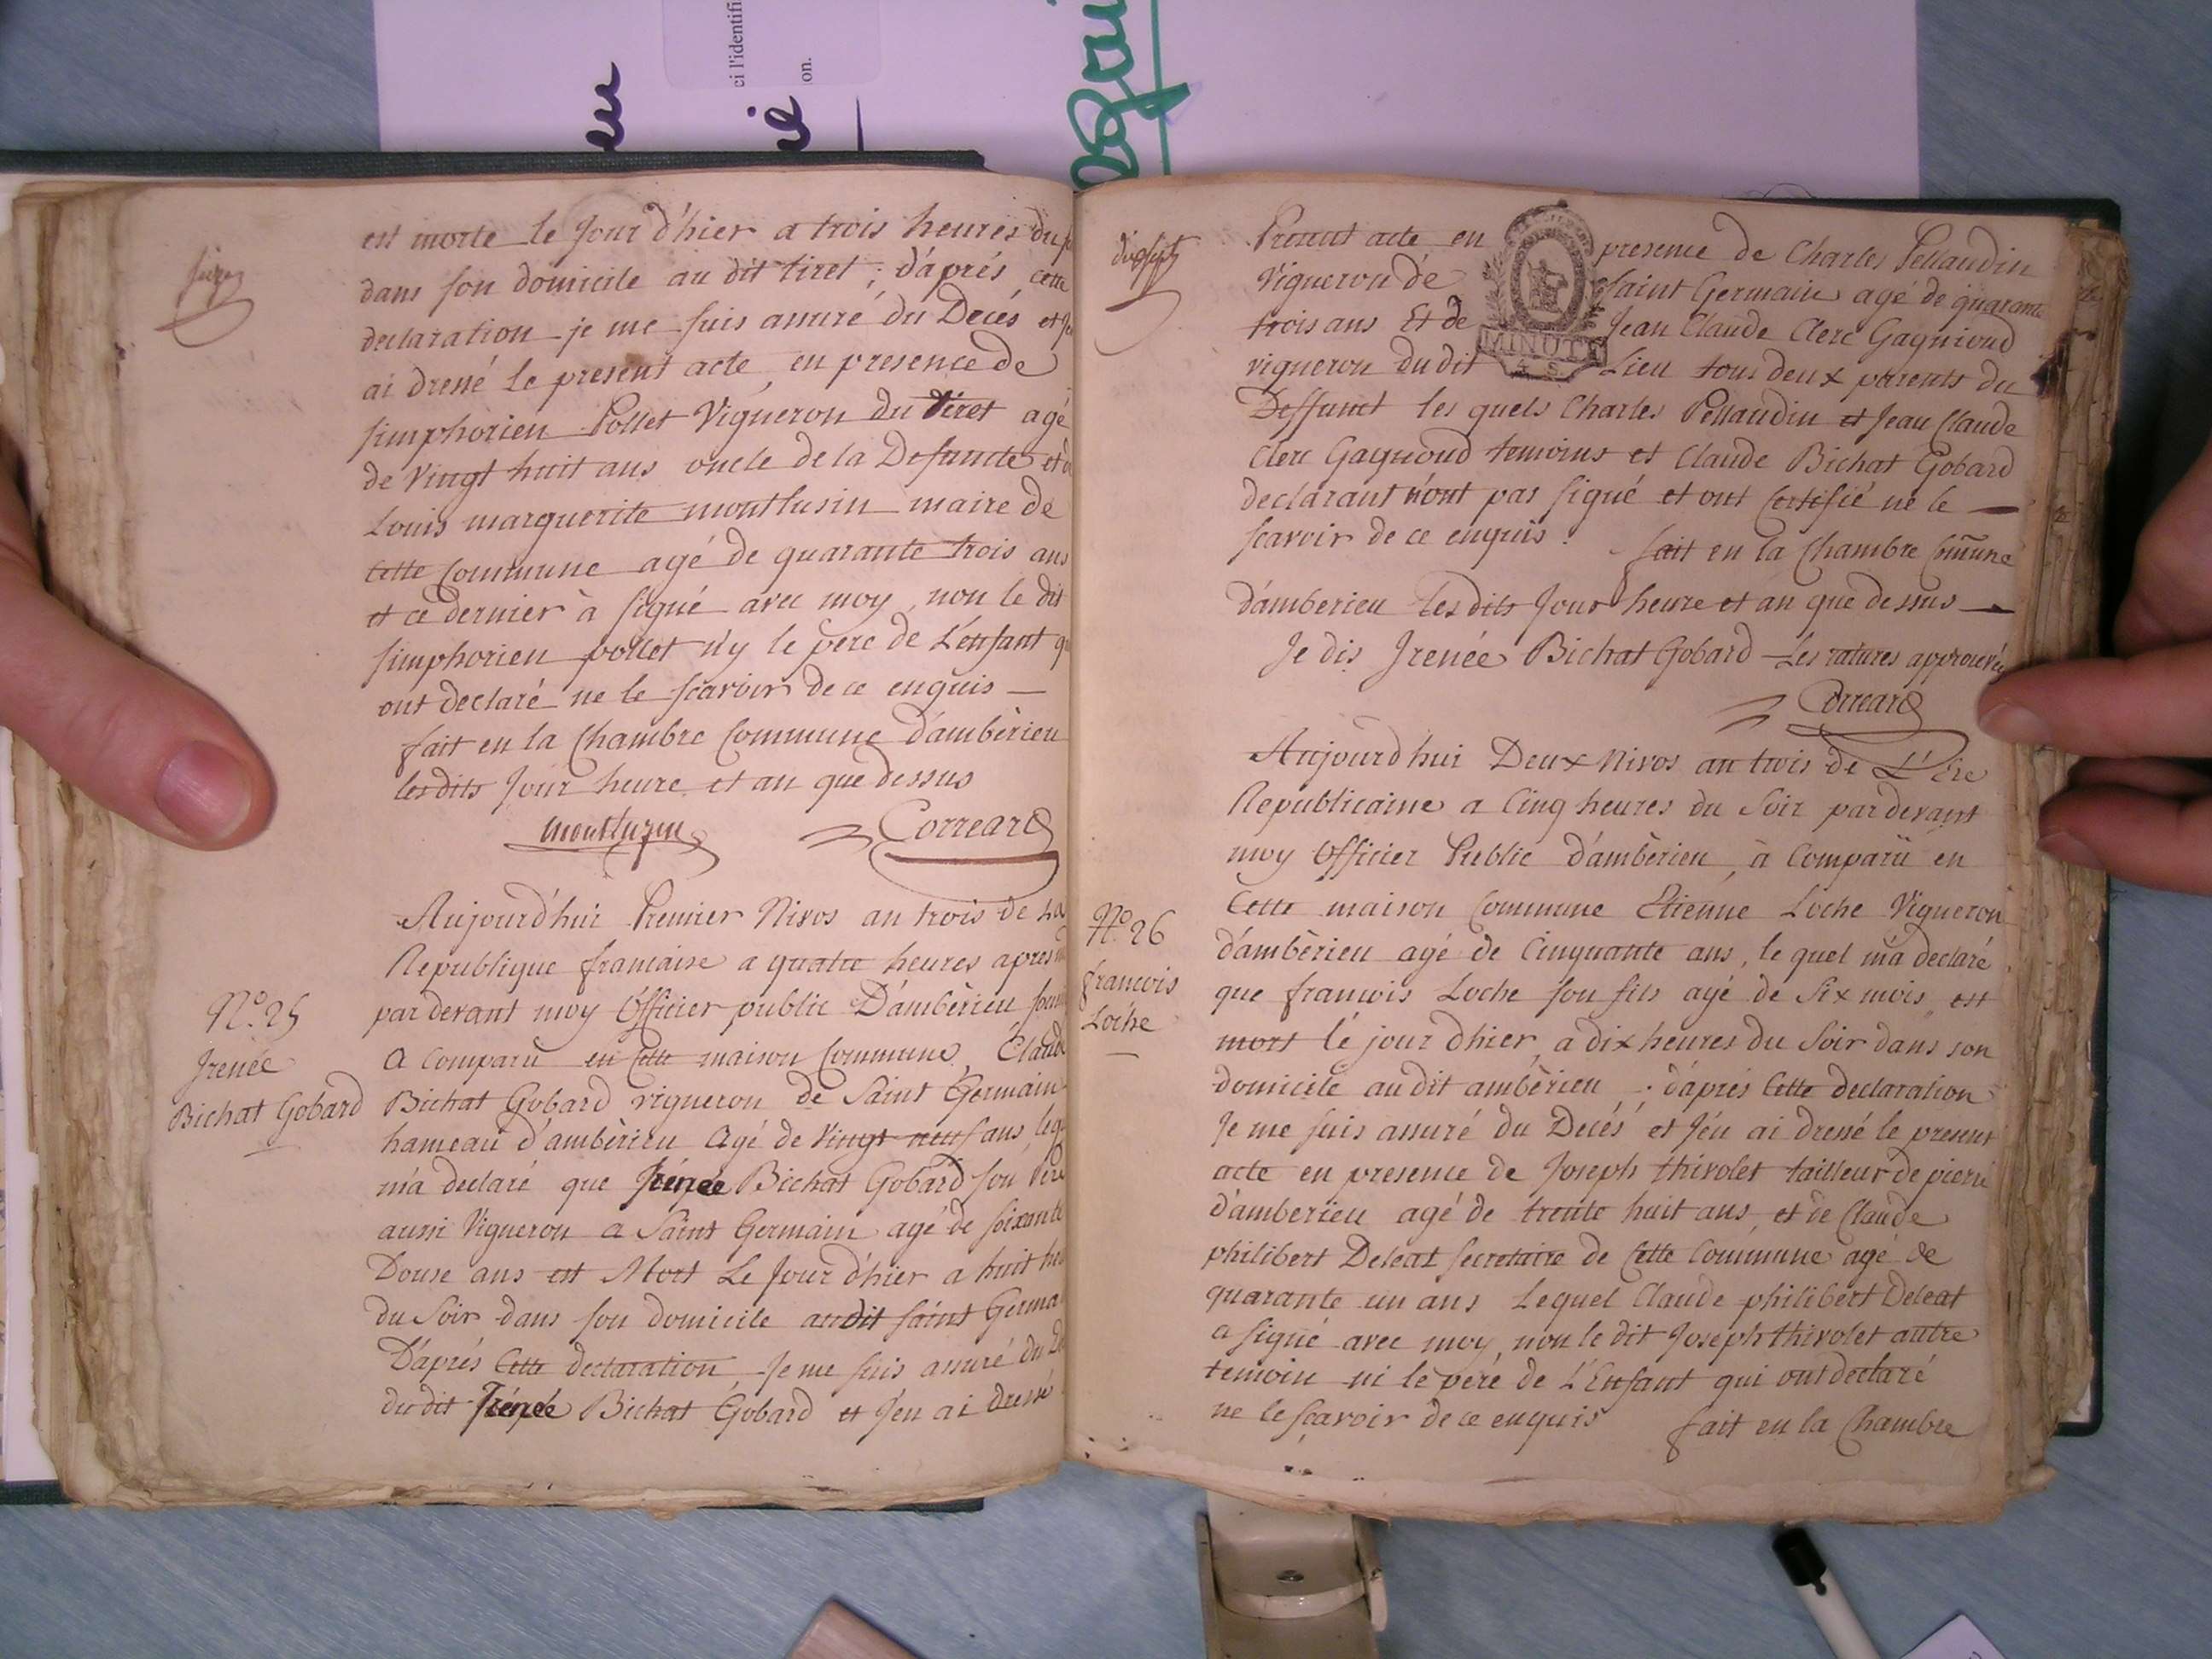 ci l'identifi
on.
seize
est morte le Jour d'hier a trois heures du
dans son domicile au dit tiret ; d'aprés cette
declaration je me suis assuré du Decés et
ai dressé le present acte, en presence de
simphorien Pollet Vigneron du tiret agé
de Vingt huit ans oncle de la Defuncte et
Louis marguerite montlusin maire de
Cette Commune agé de quarante trois ans
et ce dernier à signé avec moy, non le dit
simphorien pollet n'y le pere de L'enfant
ont declaré ne le scavoir de ce enquis —
fait en la Chambre Commune d'ambèrieu
les dits Jour heure et an que dessus
montluzin Correard
Aujourd'hui Premier Nivos an trois de La
Republique francaise a quatre heures apres
par devant moy Officier public D'ambèrieu
N.º 25
a Comparu en Cette maison Commune, Claude
Irenée
Bichat Gobard
Bichat Gobard vigneron de Saint Germain
hameau d'ambèrieu agé de Vingt neuf ans,
m'a declaré que Irénée Bichat Gobard son Pere
aussi Vigneron a Saint Germain agé de soixante
Douse ans est Mort Le Jour d'hier a huit
du Soir dans son domicile au dit saint
D'aprés Cette declaration Je me suis assuré du
du dit Irénée Bichat Gobard et J'en ai dressé
dixsept
Present acte en presence de Charles Pellaudin
Vigneron de Saint Germain agé de quarante
trois ans Et de Jean Claude Clerc Gagnioud
MINUTE
vigneron du dit Lieu tous deux parents du
4 S.
Deffunct les quels Charles Pellaudin et Jean Claude
Clerc Gagnioud temoins et Claude Bichat Gobard
declarant n'ont pas signé et ont Certifié ne le —
scavoir de ce enquis. fait en la Chambre Com̃une
d'amberieu les dits Jour heure et an que dessus —
Je dis Irenée Bichat Gobard Les ratures approuvés
Correard
Aujourd'hui Deux Nivos an trois de L'Ere
Republicaine a Cinq heures du Soir par devant
moy Officier Public d'ambèrieu, à Comparü en
Cette maison Commune Etienne Loche Vigneron
N.º 26
francois
Loche
d'ambèrieu agé de Cinquante ans, le quel m'a declaré
que francois Loche son fils agé de Six mois est
mort le jour d'hier, a dix heures du Soir dans son
domicile au dit ambèrieu ; d'aprés Cette declaration
Je me suis assuré du Decés et J'en ai dressé le present
acte en presence de Joseph thivolet tailleur de pierre
d'amberieu agé de trente huit ans, et de Claude
philibert Deleat secretaire de Cette Commune agé de
quarante un ans Lequel Claude philibert Deleat
a signé avec moy, non le dit Joseph thivolet autre
temoin ni le pére de L'Enfant qui ont declaré
ne le scavoir de ce enquis fait en la Chambre